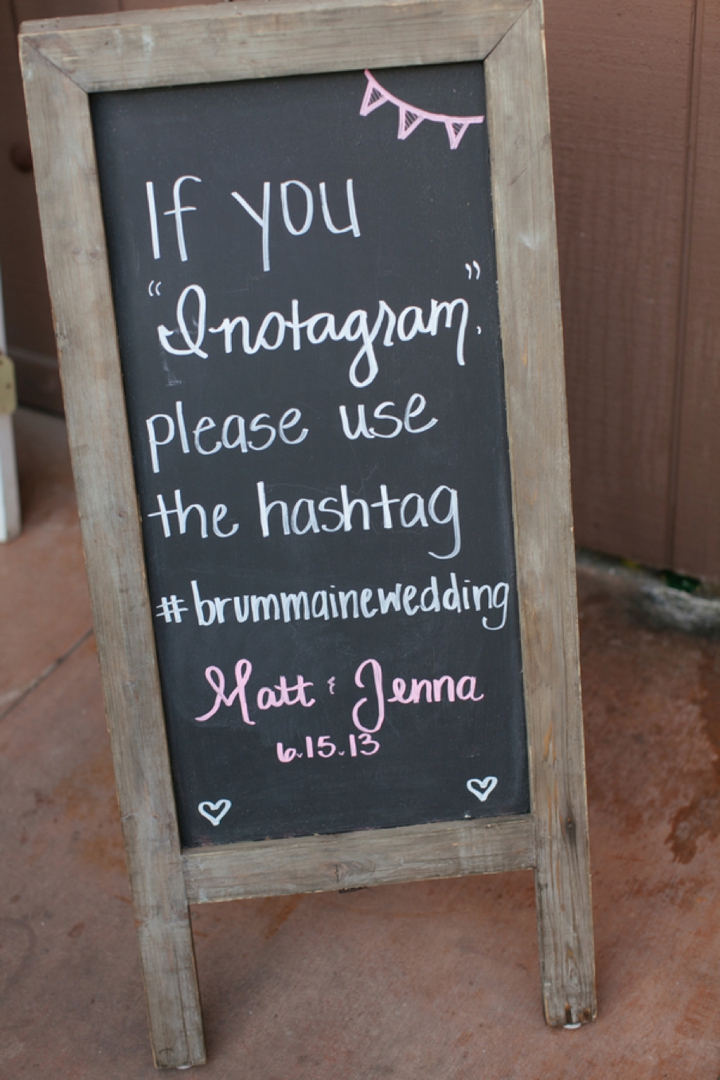 If you
"Instagram"
please use
the hashtag
#brummainewedding
Matt & Jenna
6.15.13